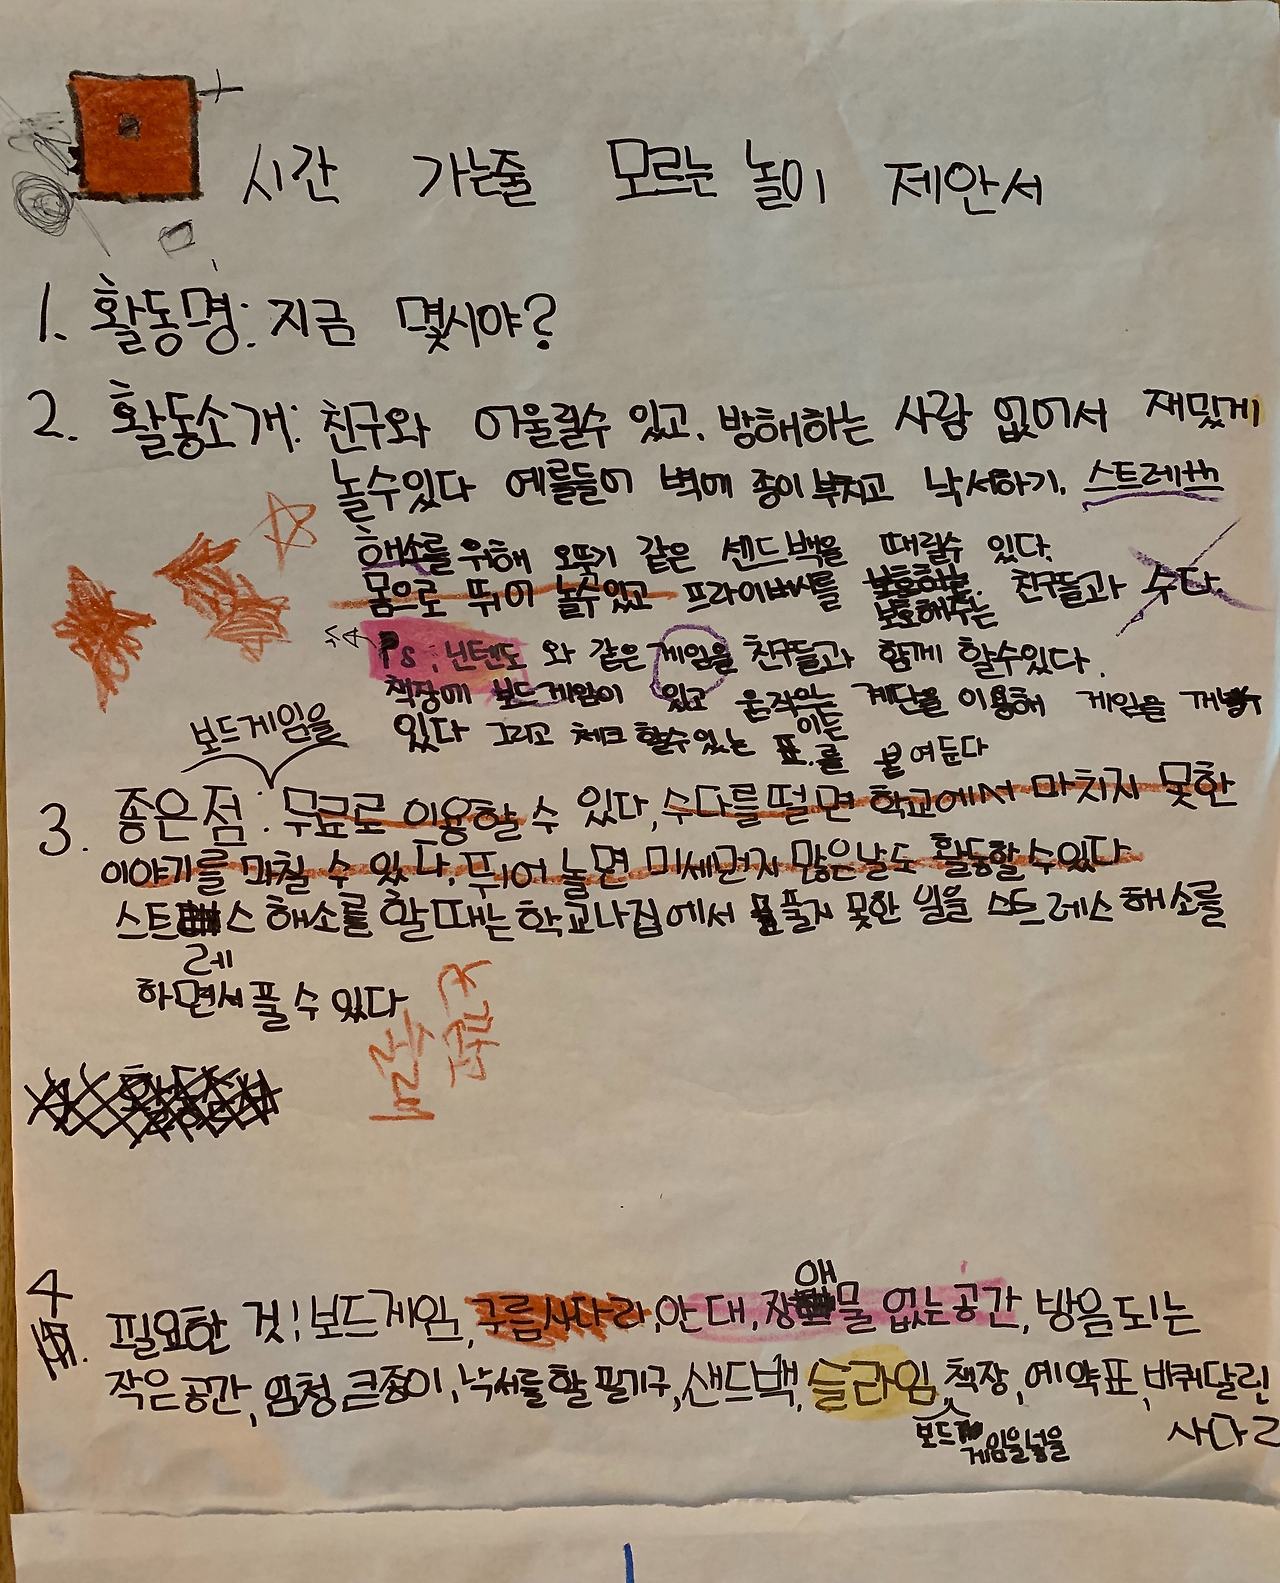 시간 가는줄 모르는 놀이 제안서
1. 활동명: 지금 몇시야?
2. 활동소개: 친구와 어울릴수 있고. 방해하는 사람 없어서 재밌게
놀수있다 예를들어 벽에 종이 부치고 낙서하기. 스트레쓰
해소를 위해 오뚜기 같은 센드백을 때릴수 있다.
몸으로 뛰어 놀수있고 프라이버시를 보호해주는 친구들과 수다.
Ps: 닌텐도 와 같은 게임을 친구들과 함께 할수있다.
책장에 보드게임이 있고 움직이는 계단을 이용해 게임을
있다 그리고 체크 할수 있는 표.를 붙여둔다
보드게임을
3. 좋은점: 무료로 이용할 수 있다, 수다를 떨면 학교에서 마치지 못한
이야기를 마칠 수 있다. 뛰어 놀면 미세먼지 많은날도 활동할 수있다
스트레스 해소를 할때는 학교나 집에서 풀지 못한 일을 스트레스 해소를
하면서 풀 수 있다
4. 필요한 것! 보드게임, 구름사다리, 안대, 장애물 없는 공간, 방음되는
작은 공간, 엄청 큰종이, 낙서를 할 필기구, 샌드백, 슬라임, 책장, 예약표, 바퀴달린
보드게임을넣을 사다리